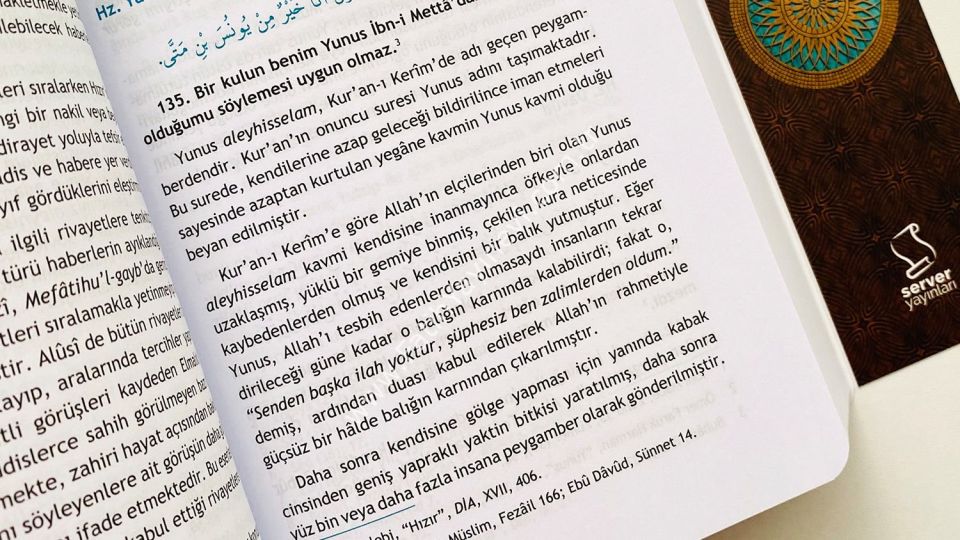 nakletmekle ye
ilebilecek habe
leri sıralarken
ngi bir nakil veya
dirayet yoluyla tefsi
dis ve habere yer ve
yıf gördüklerini eleştirm
ilgili rivayetlere
türü haberlerin ayıklan
Mefâtihu'l-gayb'da ge
tleri sıralamakla yetinme
ştir. Alûsî de bütün rivayetle
layıp, aralarında tercihler
tli görüşleri kaydeden Elma
ddislerce sahih görülmeyen
mekte, zahiri hayat açısından
nı söyleyenlere ait görüşün daha
ifade etmektedir. Bu eser
kabul ettiği rivayetler
Hz. Yu
خَيْرٌ مِنْ يُونُسَ بْنِ مَتَّى.
135. Bir kulun benim Yunus İbn-i Mettâ'da
olduğumu söylemesi uygun olmaz.3
Yunus aleyhisselam, Kur'an-ı Kerîm'de adı geçen peygam-
berdendir. Kur'an'ın onuncu suresi Yunus adını taşımaktadır.
Bu surede, kendilerine azap geleceği bildirilince iman etmeleri
sayesinde azaptan kurtulan yegâne kavmin Yunus kavmi olduğu
beyan edilmiştir.
Kur'an-ı Kerîm'e göre Allah'ın elçilerinden biri olan Yunus
aleyhisselam kavmi kendisine inanmayınca öfkeyle onlardan
uzaklaşmış, yüklü bir gemiye binmiş, çekilen kura neticesinde
kaybedenlerden olmuş ve kendisini bir balık yutmuştur. Eğer
Yunus, Allah'ı tesbih edenlerden olmasaydı insanların tekrar
dirileceği güne kadar o balığın karnında kalabilirdi; fakat o,
“Senden başka ilah yoktur, şüphesiz ben zalimlerden oldum.”
demiş, ardından duası kabul edilerek Allah'ın rahmetiyle
güçsüz bir hâlde balığın karnından çıkarılmıştır.
Daha sonra kendisine gölge yapması için yanında kabak
cinsinden geniş yapraklı yaktin bitkisi yaratılmış, daha sonra
yüz bin veya daha fazla insana peygamber olarak gönderilmiştir.
lebi, “Hızır”, DİA, XVII, 406.
Müslim, Fezâil 166; Ebû Dâvûd, Sünnet 14.
server
yayınları